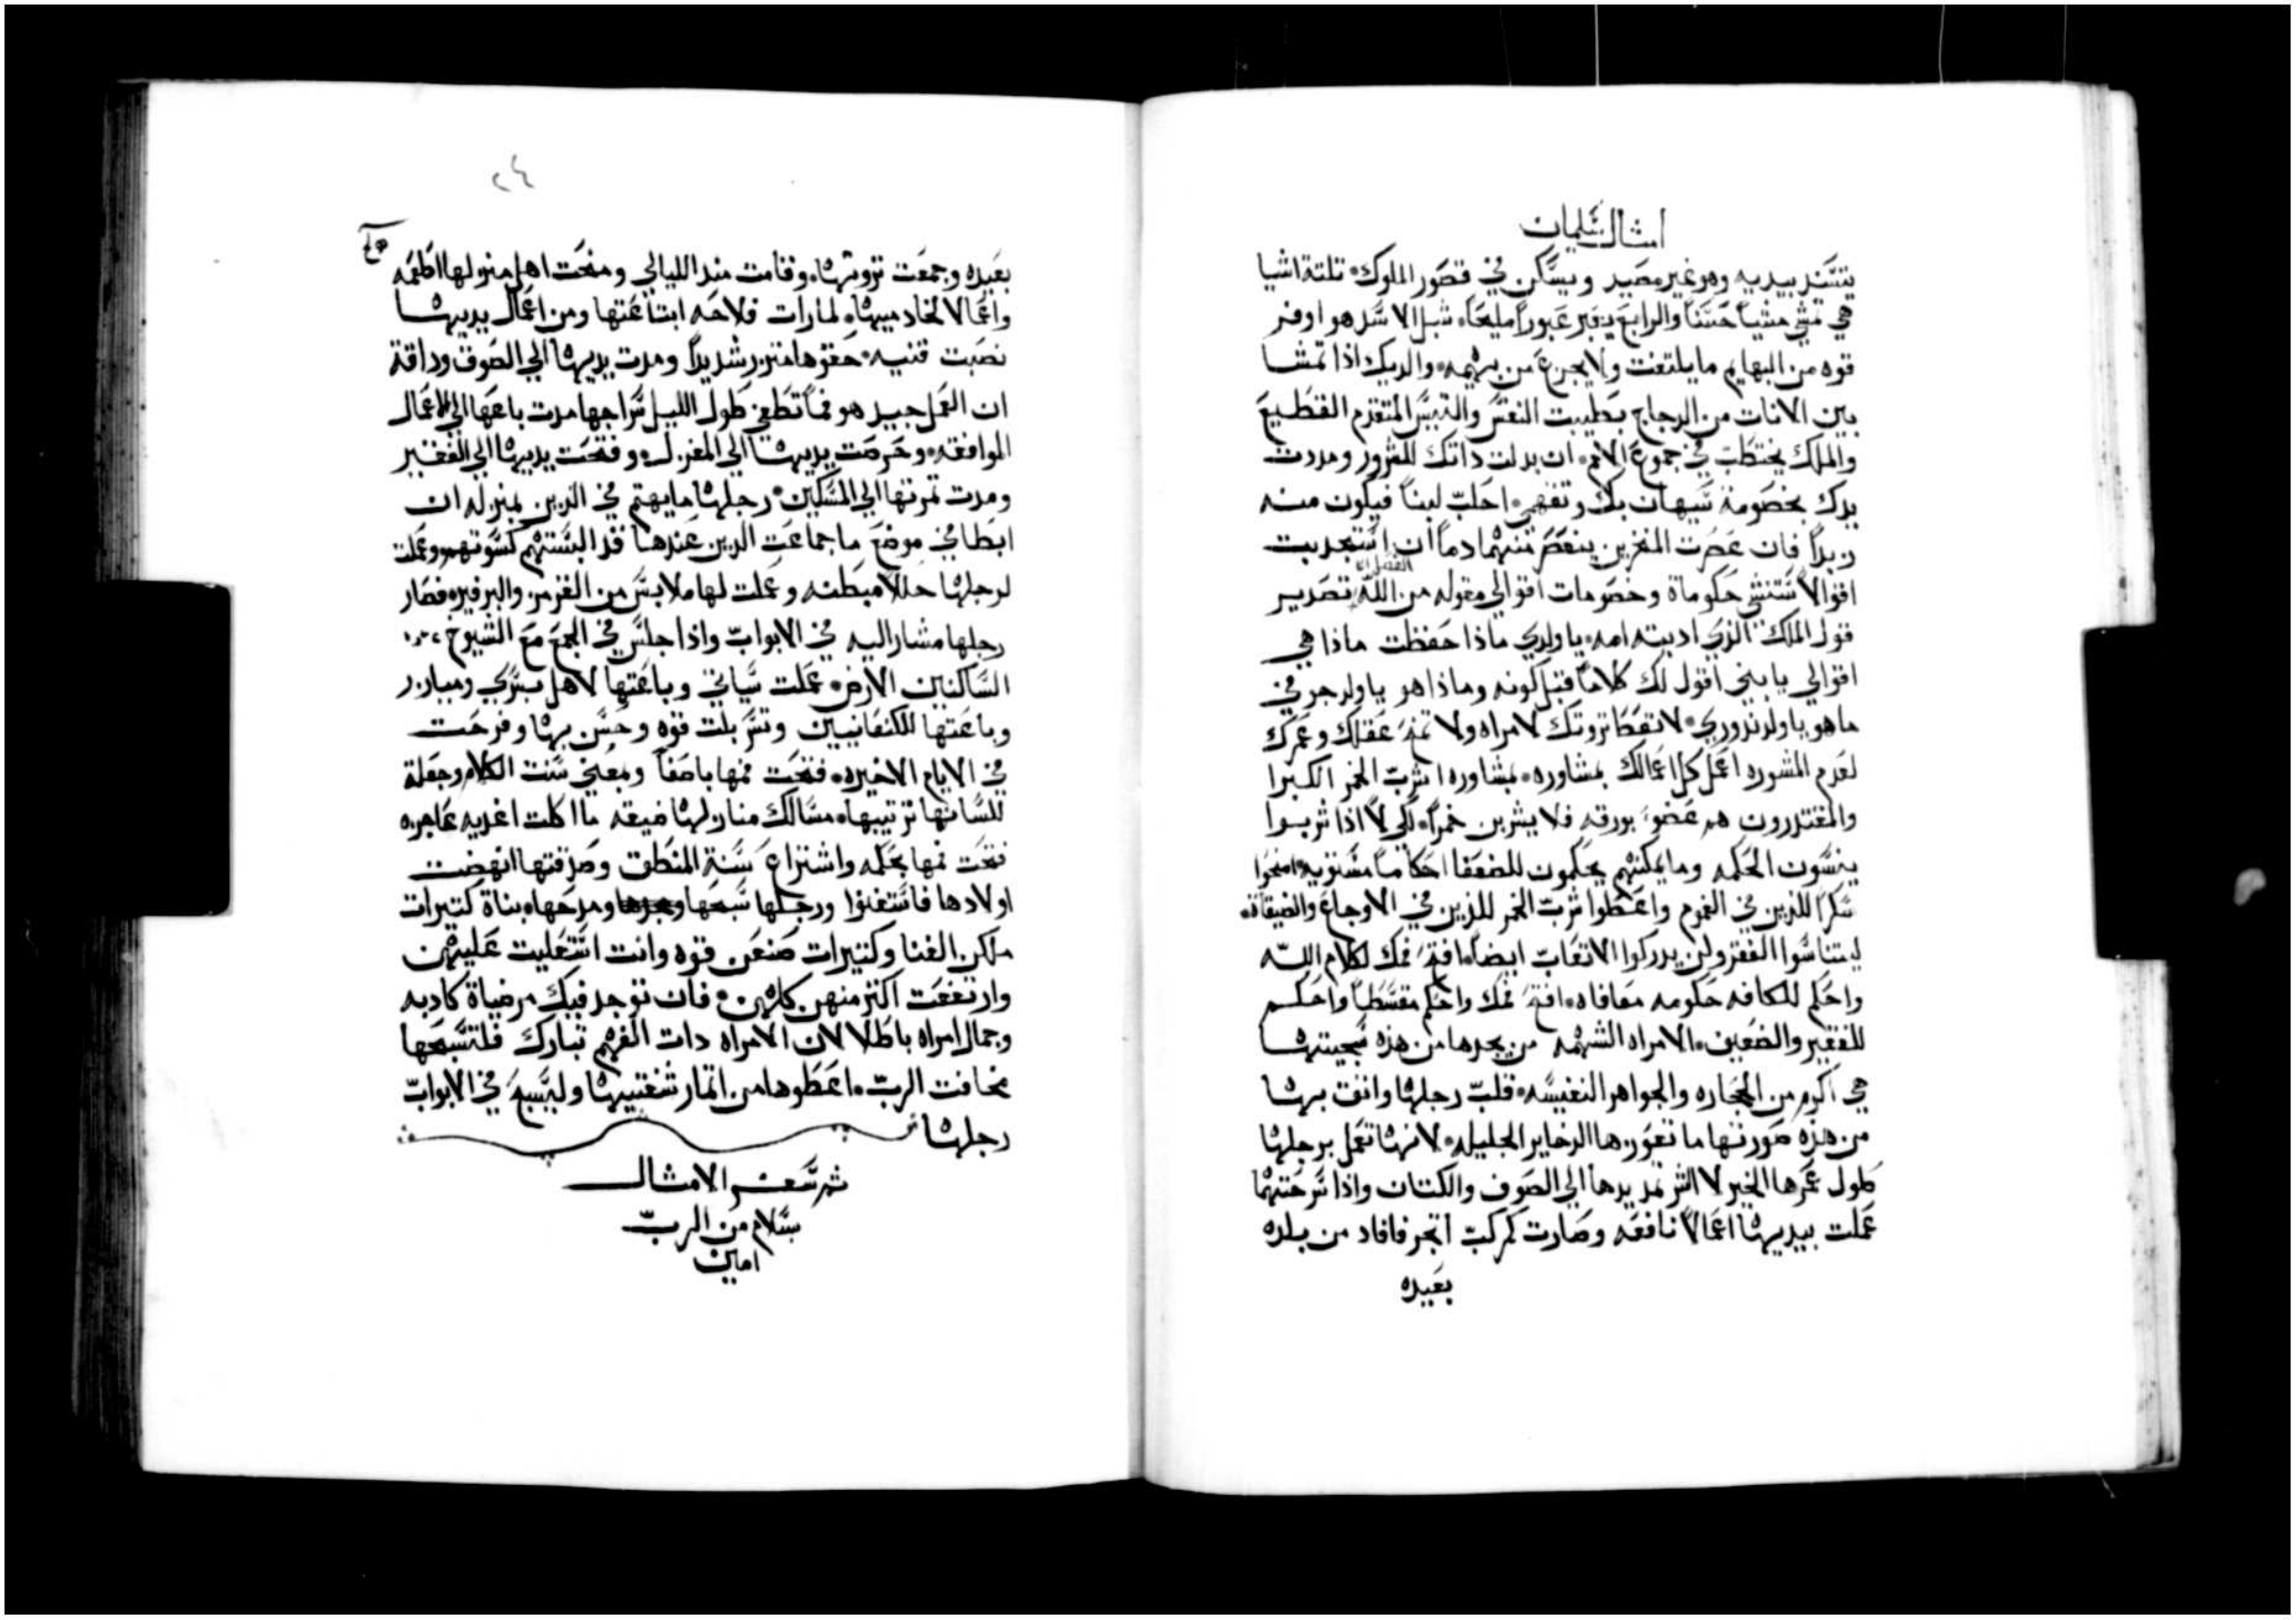 امثال سليمان
يتسند بيديه وهو غير مصيد ويسكن في قصور الملوك تلتة اشيا
هي تمشي مشياً حسناً والرابع يعبر عبوراً مليحاً شبل الاسد هو اوفر
قوه من البهايم ما يلتفت ولا يجزع من بهيمه والديك اذا تمشا
بين الانات من الدجاج بطيبت النفس والتيس المتقدم القطيع
والملك يختطب في جموع الامم ان بدلت داتك للسرور ومددت
يدك بخصومة سيهان بك وتفهم احلب لبناً فيكون منه
زبداً فان عصرت المنخرين ينعصر منهما دماً ان استجدبت
اقوالاً ستنشي حكوماة وخصومات اقوالي مقوله من الله تصدير
قول الملك الذي ادبته امه يا ولدي ماذا حفظت ماذا هي
اقوالي يا بني اقول لك كلاماً قبل كونه وماذا هو يا ولد حجري
ما هو يا ولد ندوري لا تعط تروتك لامراه ولا تمنح عقلك وعمرك
لعدم المشوره اعمل كل اعمالك بمشاوره بمشاوره اشرب الخمر الكبرا
والمقتدرون هم غضوب ورقه فلا يشربن خمراً لكي لا اذا شربوا
ينسون الحكمه وما يمكنهم يحكمون للضعفا احكاماً مستويه امنحوا
سكراً للذين في الغموم واعطوا شرب الخمر للذين في الاوجاع والضيقاة
ليتناسوا الفقر ولن يدركوا الاتعاب ايضاً افتح فمك لكلام الله
واحكم للكافه حكومه معافاه افتح فمك واحكم مقسطاً واحكم
للفقير والضعيف الامراه الشهمه من يجدها من هذه سجيتها
هي اكرم من الحجاره والجواهر النفيسه قلب رجلها واتق بها
من هذه صورتها ما تعوزها الدخاير الجليله لانها تعمل برجلها
طول عمرها الخير لا الشر تمد يدها الي الصوف والكتان واذا سرحتهما
عملت بيديها اعمالاً نافعه وصارت كمركب اتجر فافاد من بلده
بعيده
٢٤
بعيده وجمعت تروتها وقامت مند الليالي ومنحت اهل منزلها اطعمه
واعمالا لخادميها لما رات فلاحه ابتاعتها ومن اعمال يديها
نصبت قنيه حقوها متزر شديداً ومدت يديها الي الصوف وداقة
ان العمل جيد هو فما تطفي طول الليل سراجها مدت باعها الي الاعمال
الموافقه وحرصت يديها الي المغزل وفتحت يديها الي الفقير
ومدت تمرتها الي المسكين رجلها ما يهتم في الدين بمنزله ان
ابطا في موضع ما جماعت الدين عندها قد البستهم كسوتهم وعملت
لرجلها حللاً مبطنه وعملت لها ملابس من القرمز والبرفير فصار
رجلها مشار اليه في الابواب واذا جلس في الجمع مع الشيوخ
الساكنين الارض عملت سباني وباعتها لاهل بسري وميازر
وباعتها للكنعانيين وتسربلت قوه وحسن بها وفرحت
في الايام الاخيره فتحت فمها باصغاً وبمعني سنت الكلام وجعلة
للسانها ترتيبها مسالك منازلها ضيقه ما اكلت اغديه عاجزه
فتحت فمها بحكمه واشتراع سنة المنطق وصدقتها انهضت
اولادها فاستغنوا ورجلها سبحها ومدحها بناة كتيرات
ملكن الغنا وكتيرات صنعن قوه وانت استعليت عليهن
وارتفعت اكتر منهن كلهن فان توجد فيك مرضياة كادبه
وجمال امراه باطلا لان الامراه دات الفهم تبارك فلتسبحها
مخافت الرب اعطوها من اتمار شفتيها وليسبح في الابواب
رجلها
تم سفر الامثال
بسلام من الرب
امين